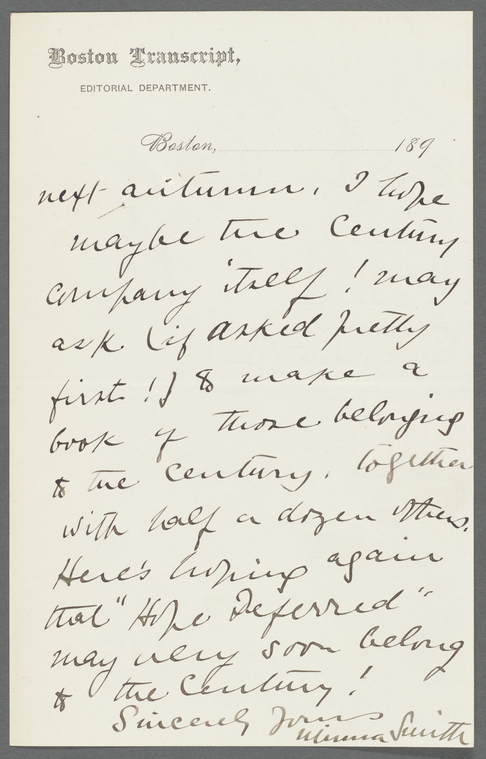 Boston Transcript,
EDITORIAL DEPARTMENT.
Boston, 189
next autumn. I hope
maybe the Century
Company itself! may
ask (if asked pretty
first!) to make a
book of those belonging
to the Century, together
with half a dozen others.
Here's hoping again
that "Hope Deferred"
may very soon belong
to the Century!
Sincerely Yours
Minna Smith